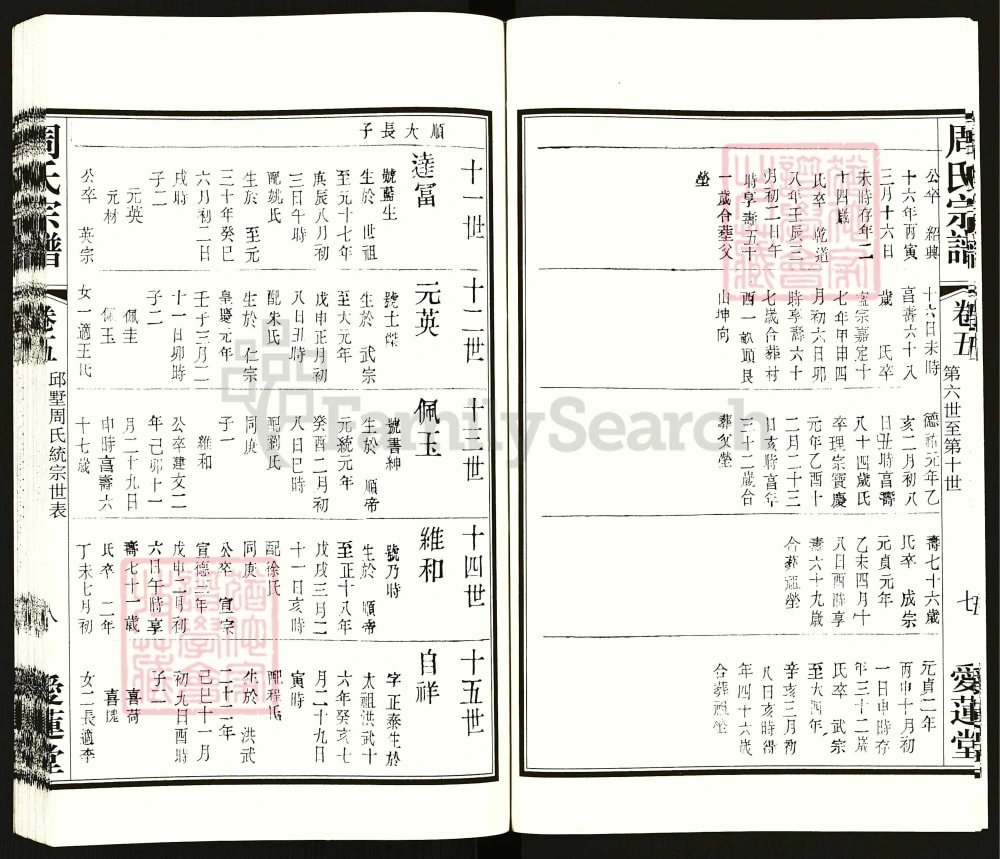 周氏宗譜
卷五
第六世至第十世
七
愛蓮堂
公卒 紹興
十六年丙寅
三月十六日
未時存年二
十四歲
氏卒 乾道
八年壬辰三
月初二日午
時享壽五十
一歲合葬父
塋
十六日未時
享壽六十八
歲 氏卒
寧宗嘉定十
七年甲申四
月初六日卯
時享壽六十
七歲合葬村
酉一畝頭艮
山坤向
德祐元年乙
亥二月初八
日丑時享壽
八十四歲氏
卒理宗寶慶
元年乙酉十
二月二十三
日亥時享年
三十二歲合
葬父塋
壽七十六歲
氏卒 成宗
元貞元年
乙未四月十
八日酉時享
壽六十九歲
合葬祖塋
元貞二年
丙申十月初
一日申時存
年三十二歲
氏卒 武宗
至大四年
辛亥三月初
八日亥時得
年四十六歲
合葬祖塋
順大長子
十一世
達富
號藍生
生於 世祖
至元十七年
庚辰八月初
三日午時
配姚氏
生於 至元
三十年癸巳
六月初二日
戌時
子二
元英
元材
公卒 英宗
十二世
元英
號士傑
生於 武宗
至大元年
戊申正月初
八日丑時
配朱氏
生於 仁宗
皇慶元年
壬子三月二
十一日卯時
子二
佩圭
佩玉
女一適王氏
十三世
佩玉
號書紳
生於 順帝
元統元年
癸酉二月初
八日巳時
配劉氏
同庚
子一
維和
公卒建文二
年己卯十一
月二十九日
申時享壽六
十七歲
十四世
維和
號乃時
生於 順帝
至正十八年
戊戌三月二
十一日亥時
配徐氏
同庚
公卒 宣宗
宣德三年
戊申二月初
六日午時享
壽七十一歲
氏卒 二年
丁未七月初
十五世
自祥
字正泰生於
太祖洪武十
六年癸亥七
月二十九日
寅時
配程氏
生於 洪武
二十二年
己巳十一月
初九日酉時
子二
喜荷
喜槐
女二長適李
周氏宗譜
卷五
邱墅周氏統宗世表
八
愛蓮堂
FamilySearch